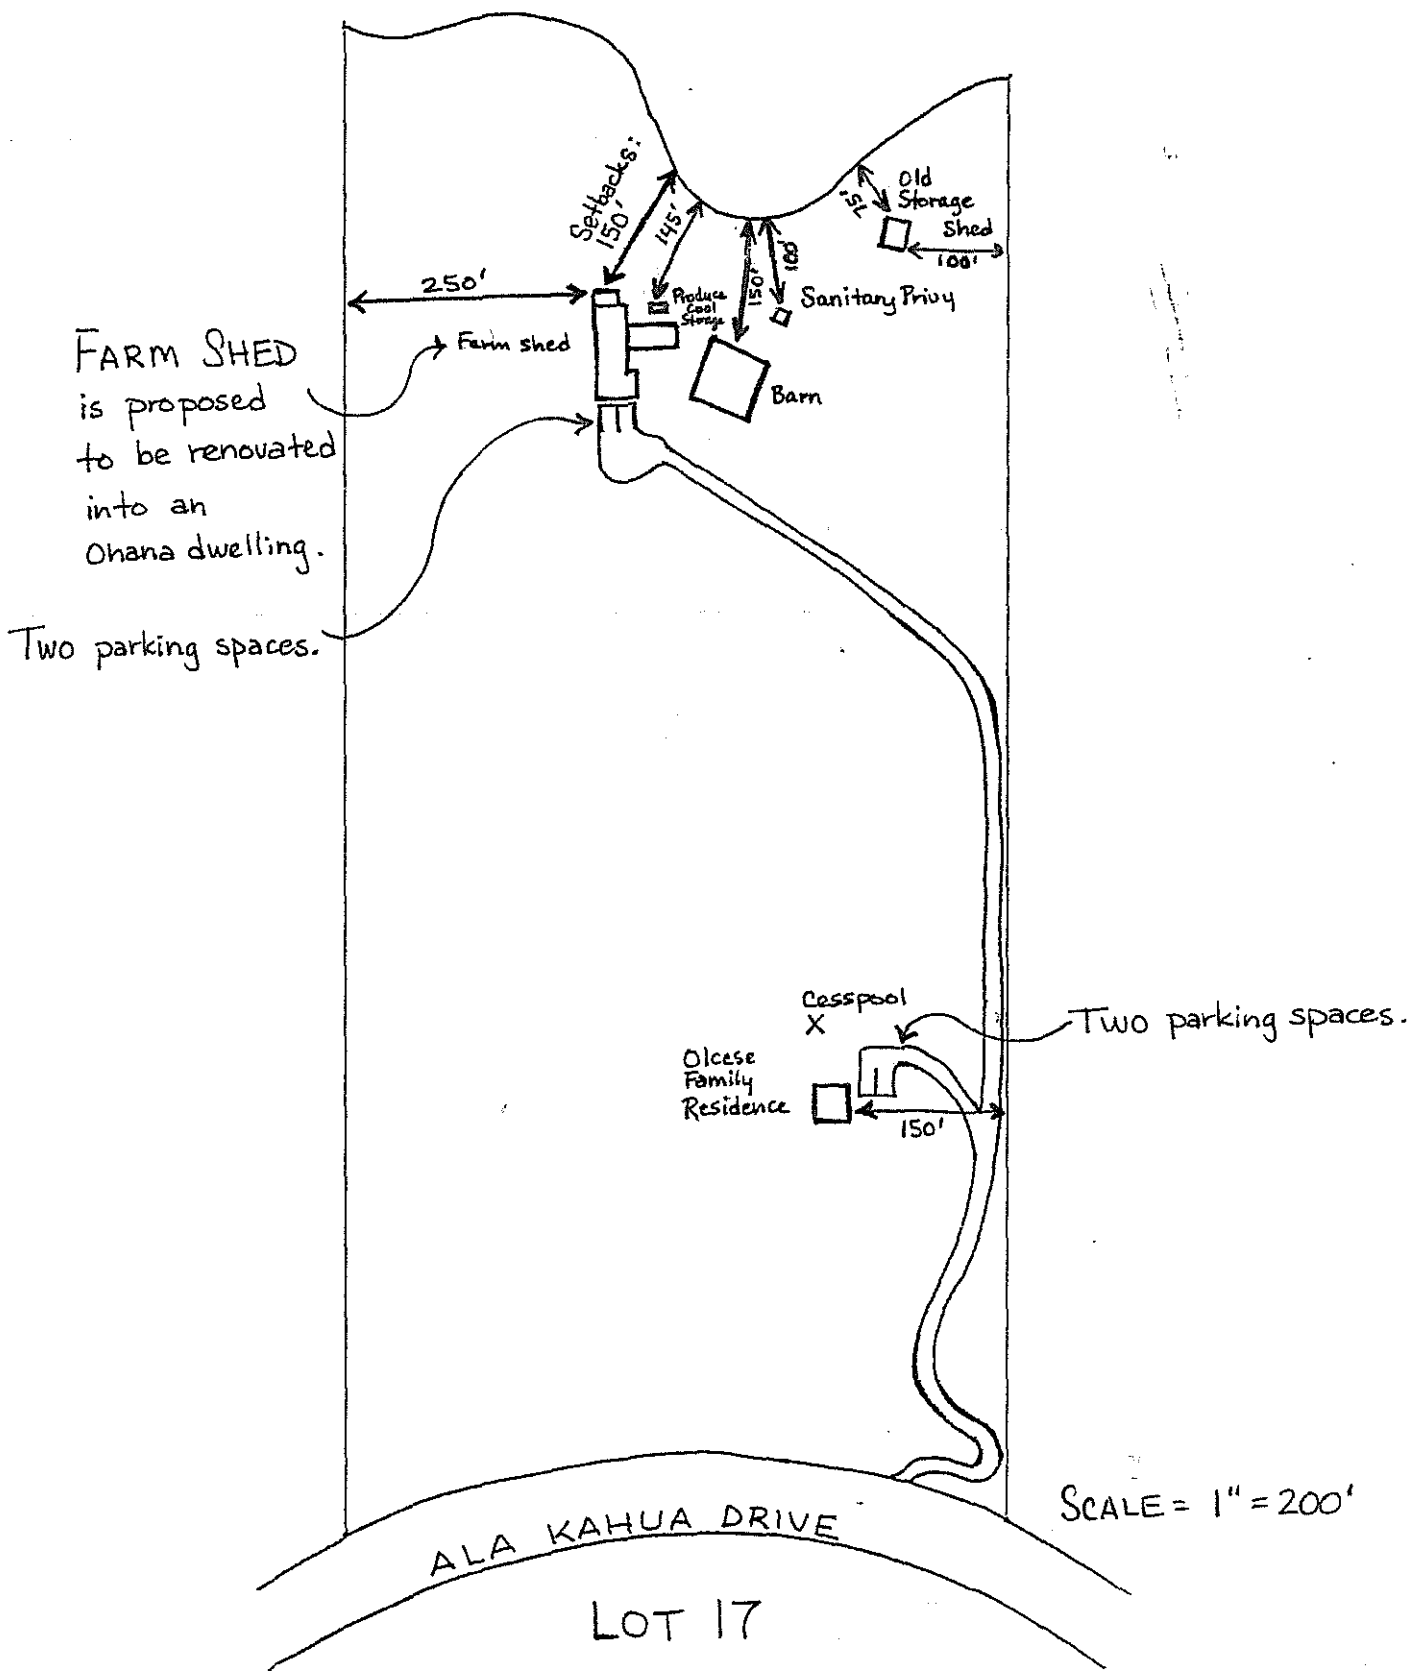 Setbacks:
150'
145'
150'
100'
75'
Old
Storage
Shed
100'
250'
Produce
Cool
Storage
Sanitary Privy
FARM SHED
is proposed
to be renovated
into an
Ohana dwelling.
Farm shed
Barn
Two parking spaces.
Cesspool
X
Two parking spaces.
Olcese
Family
Residence
150'
SCALE = 1" = 200'
ALA KAHUA DRIVE
LOT 17